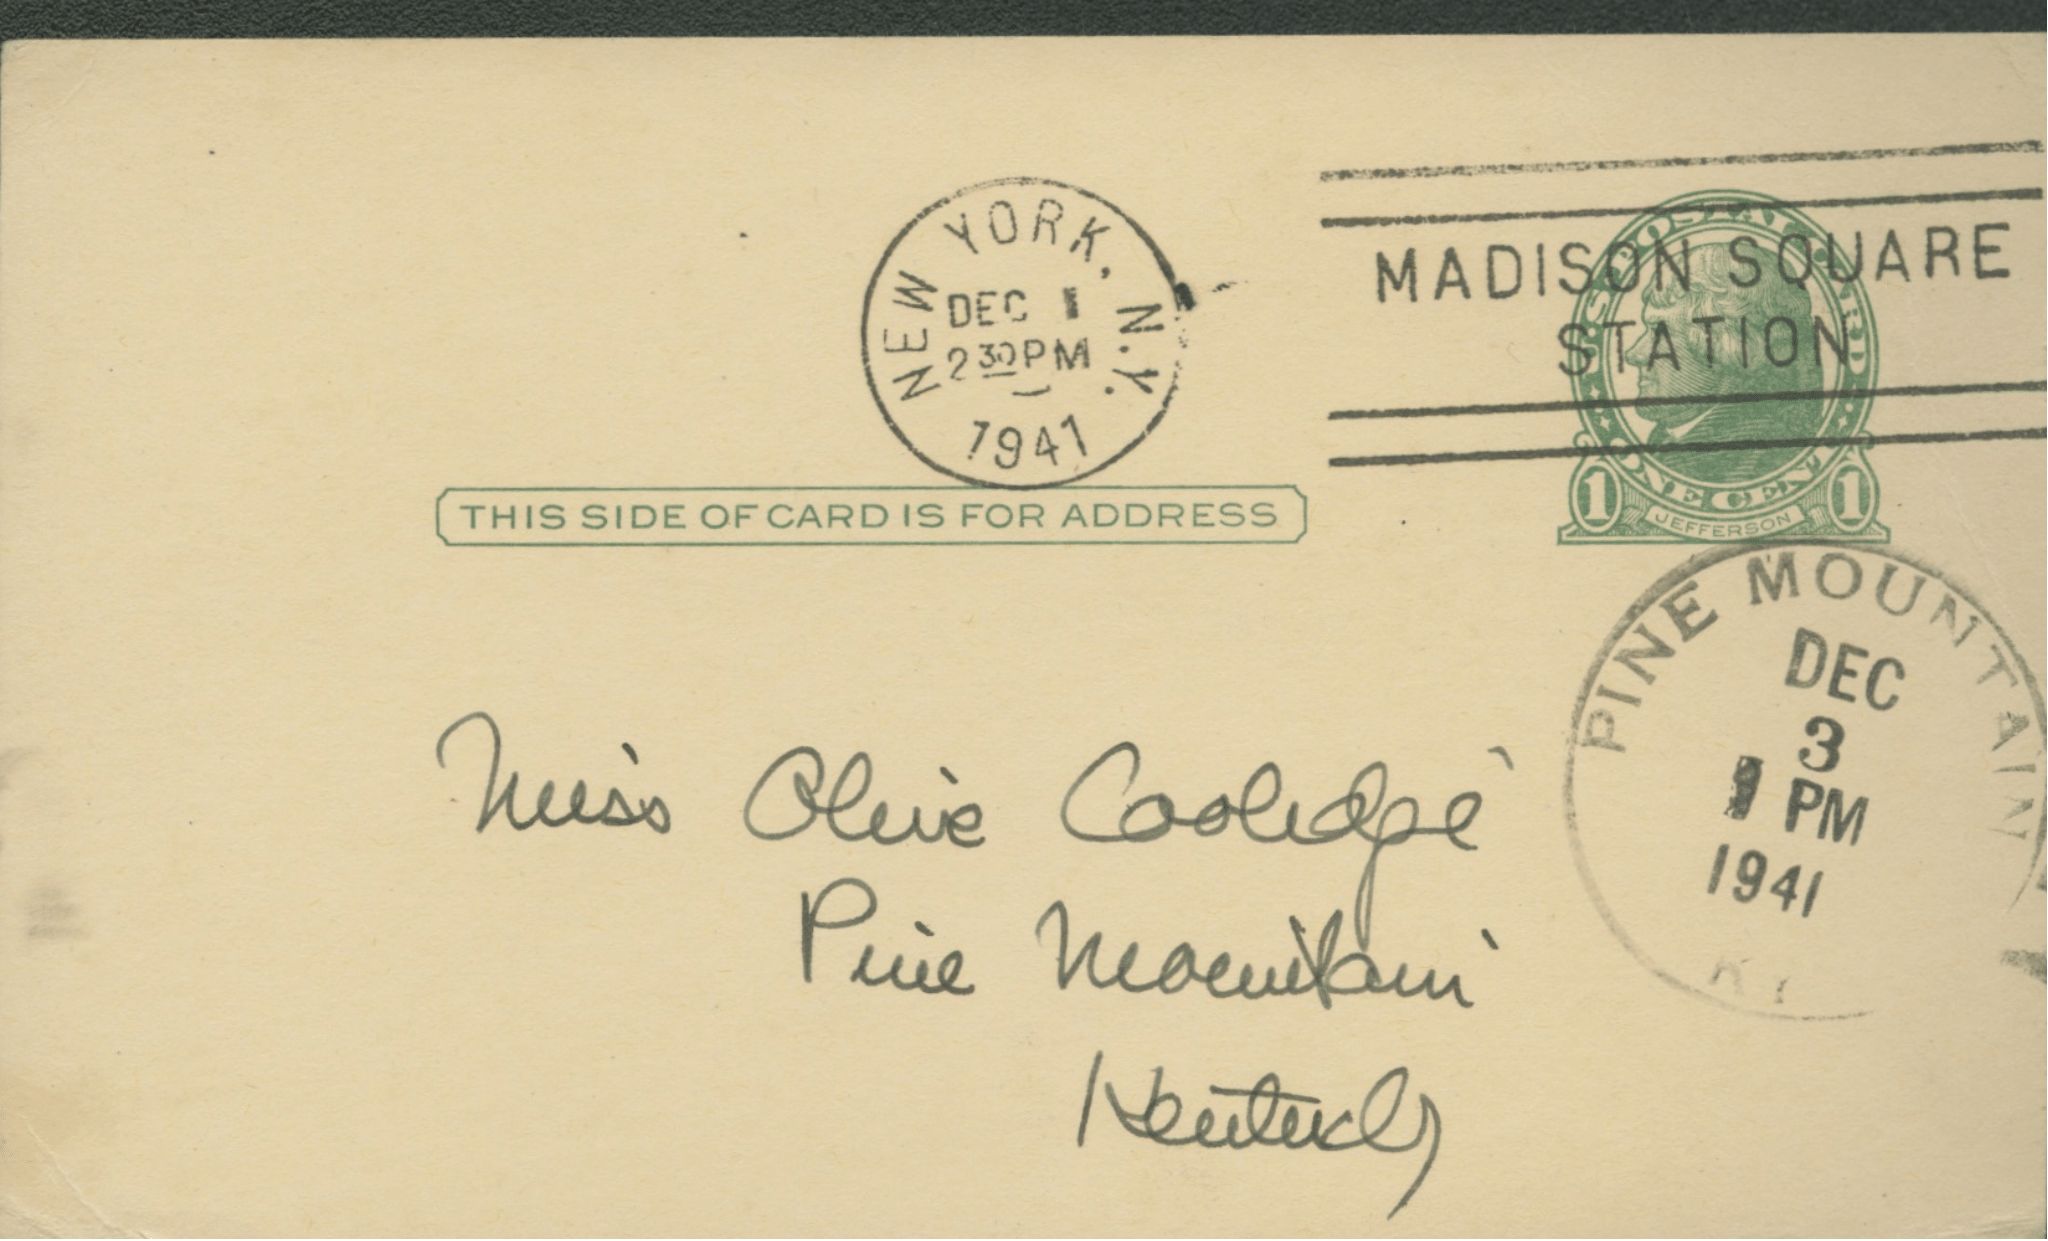 NEW YORK, N.Y.
DEC 1
2 30 PM
1941
MADISON SQUARE
STATION
U.S. POSTAL CARD
ONE CENT
1 JEFFERSON 1
THIS SIDE OF CARD IS FOR ADDRESS
PINE MOUNTAIN
DEC
3
1 PM
1941
KY
Miss Olive Coolidge
Pine Mountain
Kentucky